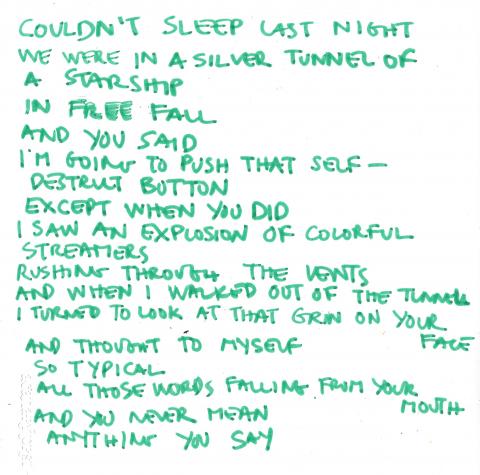 COULDN'T SLEEP LAST NIGHT
WE WERE IN A SILVER TUNNEL OF
A STARSHIP
IN FREE FALL
AND YOU SAID
I'M GOING TO PUSH THAT SELF—
DESTRUCT BUTTON
EXCEPT WHEN YOU DID
I SAW AN EXPLOSION OF COLORFUL
STREAMERS
RUSHING THROUGH THE VENTS
AND WHEN I WALKED OUT OF THE TUNNEL
I TURNED TO LOOK AT THAT GRIN ON YOUR
FACE
AND THOUGHT TO MYSELF
SO TYPICAL
ALL THOSE WORDS FALLING FROM YOUR
MOUTH
AND YOU NEVER MEAN
ANYTHING YOU SAY